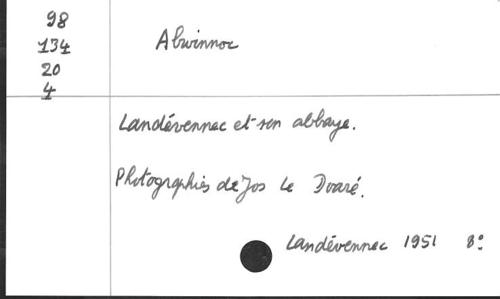 98
134
20
4
Alwinnoc
Landévennec et son abbaye.
Photographies de Jos Le Doaré.
Landévennec 1951 8º